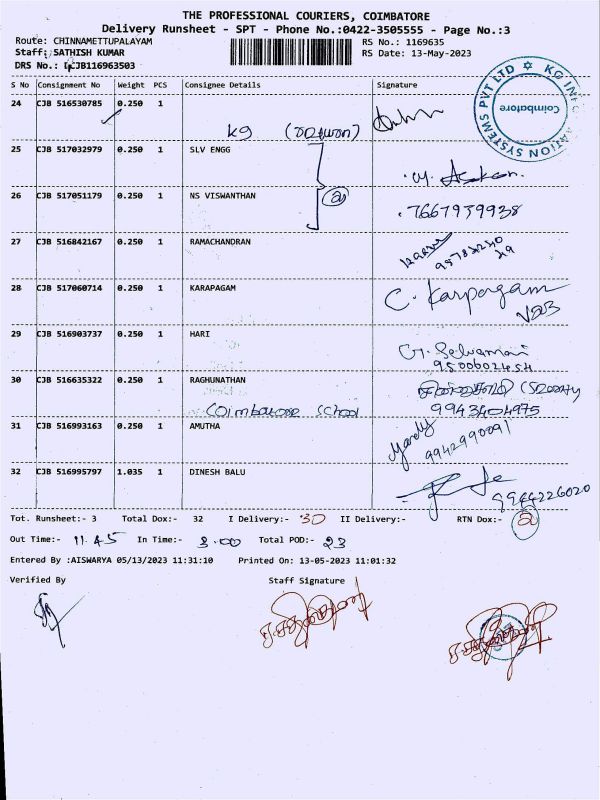 THE PROFESSIONAL COURIERS, COIMBATORE
Delivery Runsheet - SPT - Phone No.:0422-3505555 - Page No.:3
Route: CHINNAMETTUPALAYAM
RS No.: 1169635
Staff: SATHISH KUMAR
RS Date: 13-May-2023
DRS No.: CJB116963503
S No Consignment No Weight PCS Consignee Details Signature
KG INFORMATION SYSTEMS PVT LTD
Coimbatore
24 CJB 516530785 0.250 1
kg
25 CJB 517032979 0.250 1 SLV ENGG
26 CJB 517051179 0.250 1 NS VISWANTHAN
7667939938
27 CJB 516842167 0.250 1 RAMACHANDRAN
28 CJB 517060714 0.250 1 KARAPAGAM C. Karpagam
29 CJB 516903737 0.250 1 HARI G. Selvamani
9500602454
30 CJB 516635322 0.250 1 RAGHUNATHAN
Coimbatore School 9943404975
31 CJB 516993163 0.250 1 AMUTHA
9942990091
32 CJB 516995797 1.035 1 DINESH BALU
9944226020
Tot. Runsheet:- 3 Total Dox:- 32 I Delivery:- 30 II Delivery:- RTN Dox:- 2
Out Time:- 11.45 In Time:- 3.00 Total POD:- 23
Entered By :AISWARYA 05/13/2023 11:31:10 Printed On: 13-05-2023 11:01:32
Verified By Staff Signature